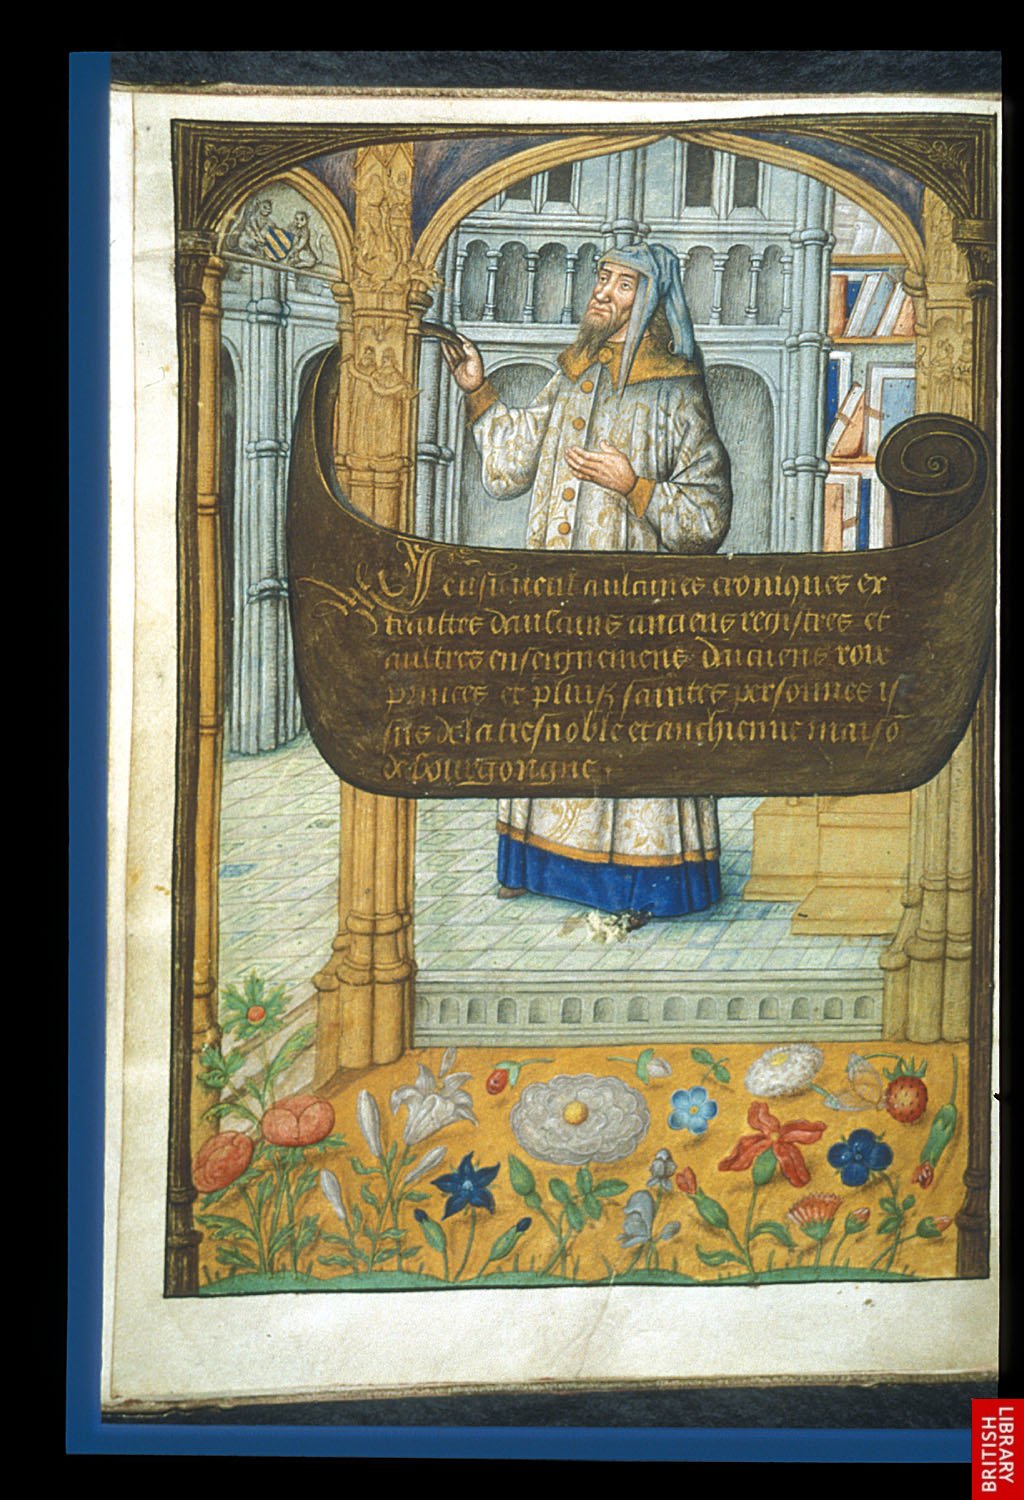 Jcy sensuieult aulcunes croniques ex
traittes daulcuns anciens registres et
aultres enseignemens danciens roix
princes et pluis saintes personnes is
sus de la tresnoble et anchienne maiso
de bourgongne .
BRITISH
LIBRARY